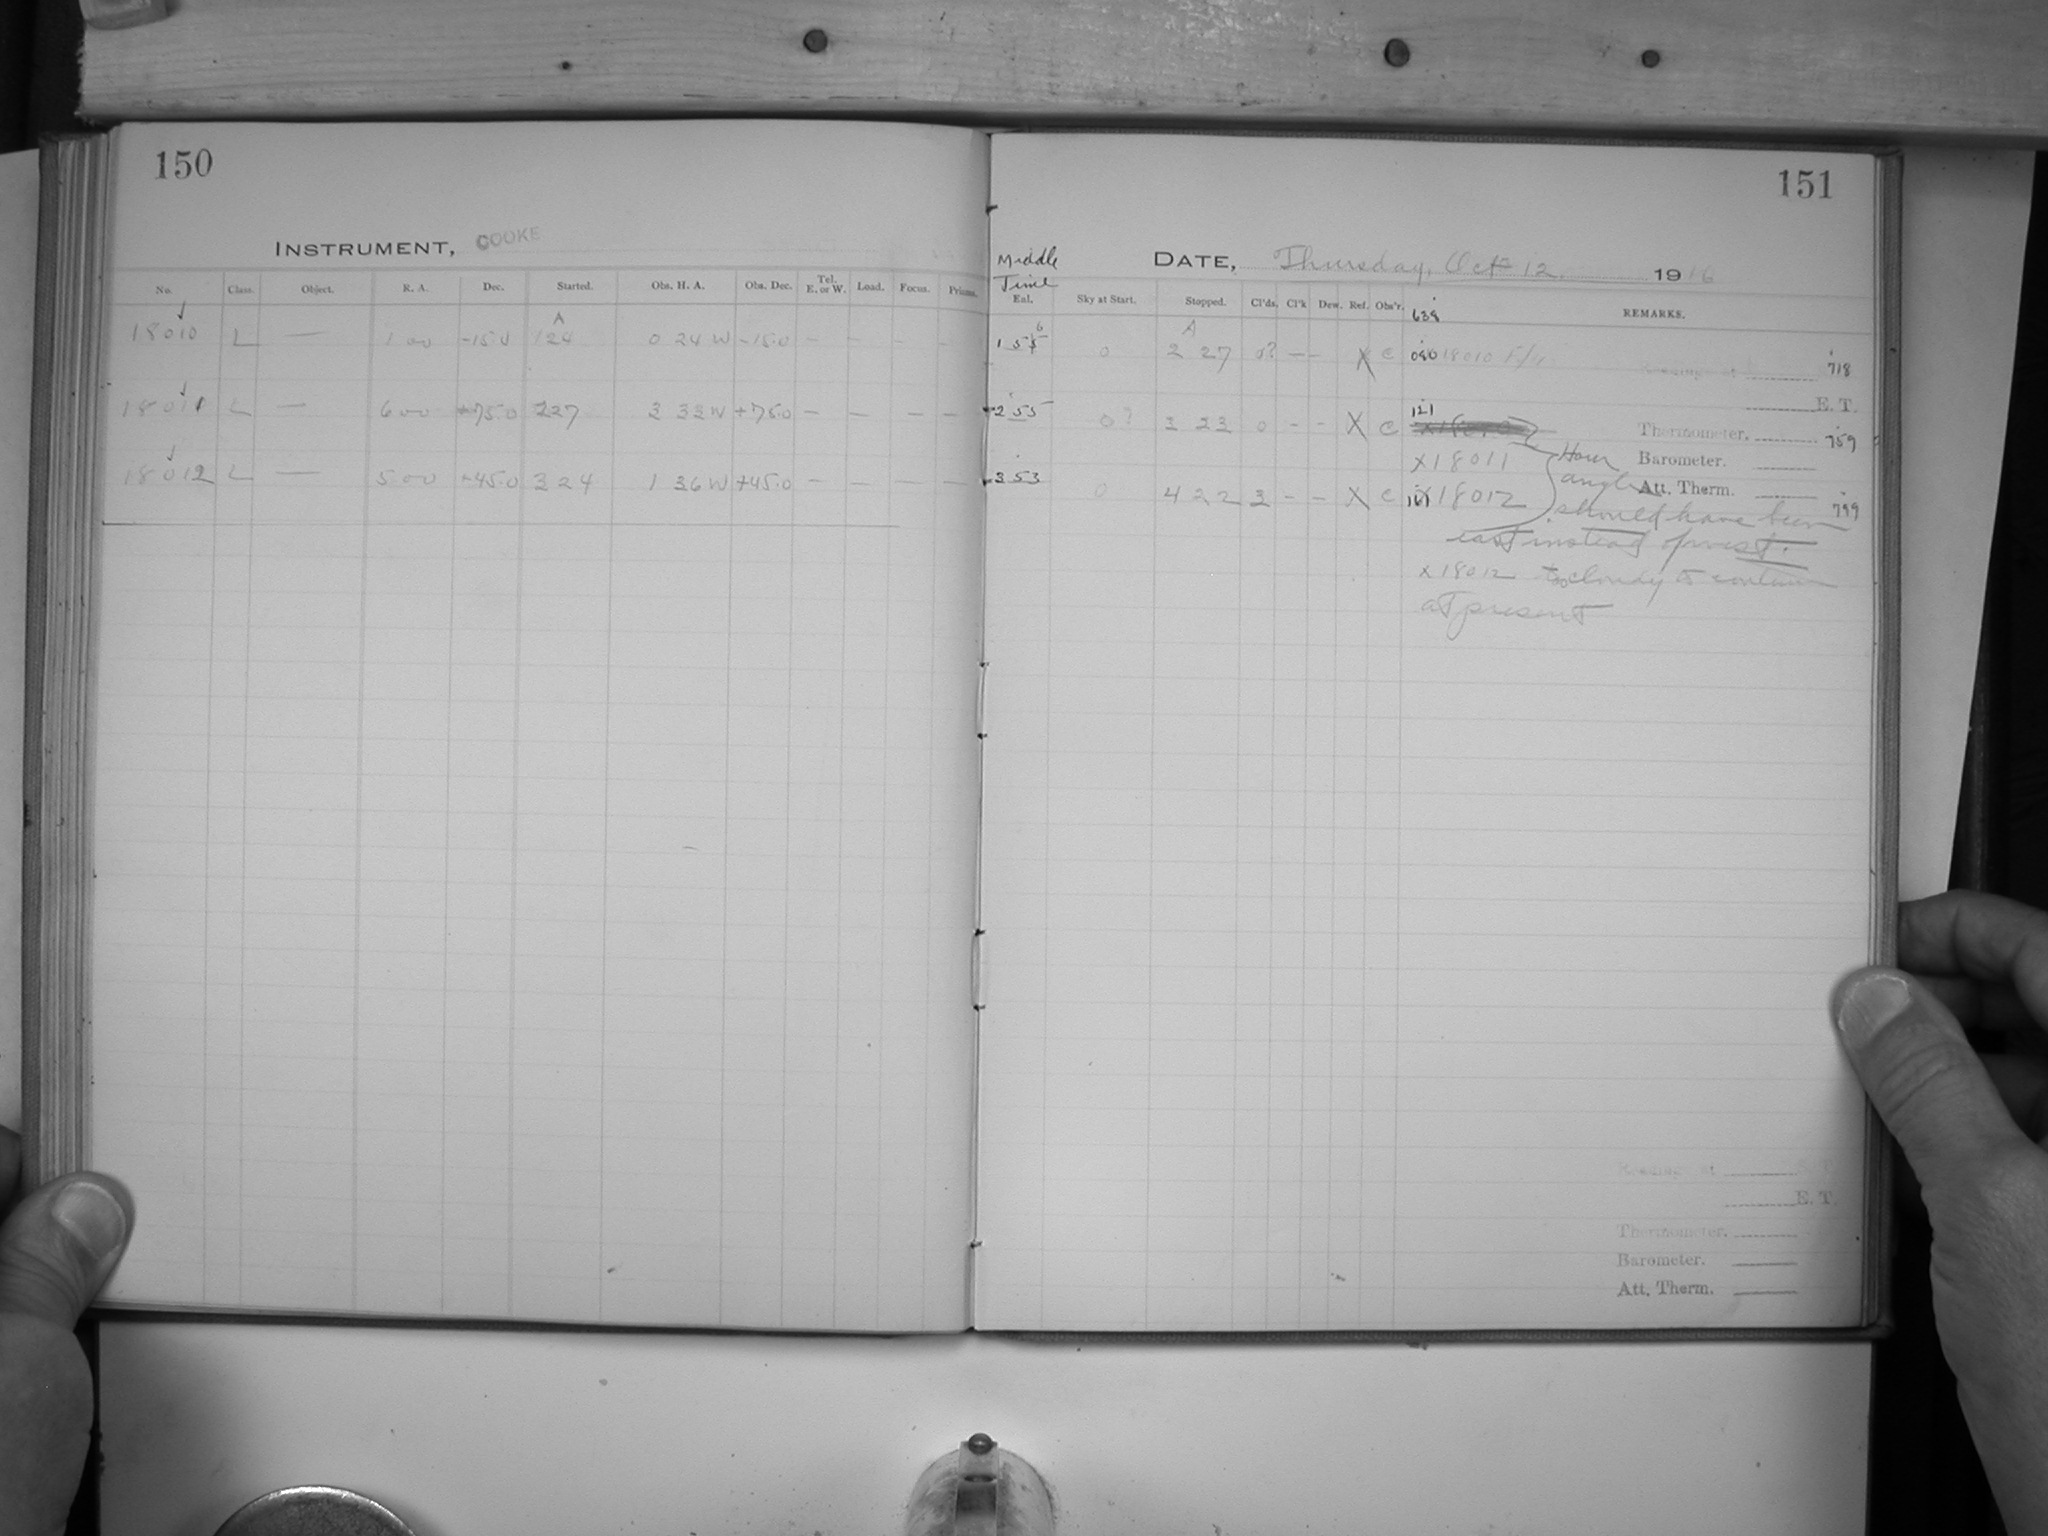 150
INSTRUMENT, COOKE
No. Class. Object. R. A. Dec. Started. Obs. H. A. Obs. Dec. Tel. E. or W. Load. Focus. Prisms.
A
18010 L — 1 00 -15.0 124 0 24 W -15.0 - - - -
18011 L — 6 00 +75.0 227 3 33 W +75.0 - - - -
18012 L — 5 00 +45.0 324 1 36 W +45.0 - - - -
151
Middle
Time
DATE, Thursday, Oct 12 1916
Eal. Sky at Start. Stopped. Cl'ds. Cl'k Dew. Ref. Obs'r. REMARKS.
638
A
1 55 6 0 2 27 0? - - X C 080 18010 718
E. T.
2 55 0? 3 23 0 - - X C 121 Thermometer. 759
X18011 Hour Barometer.
angle Att. Therm.
3 53 0 4 22 3 - - X C 161 X18012 should have been 799
east instead of west.
X 18012 too cloudy to continue
at present
Readings at
E. T.
Thermometer.
Barometer.
Att. Therm.